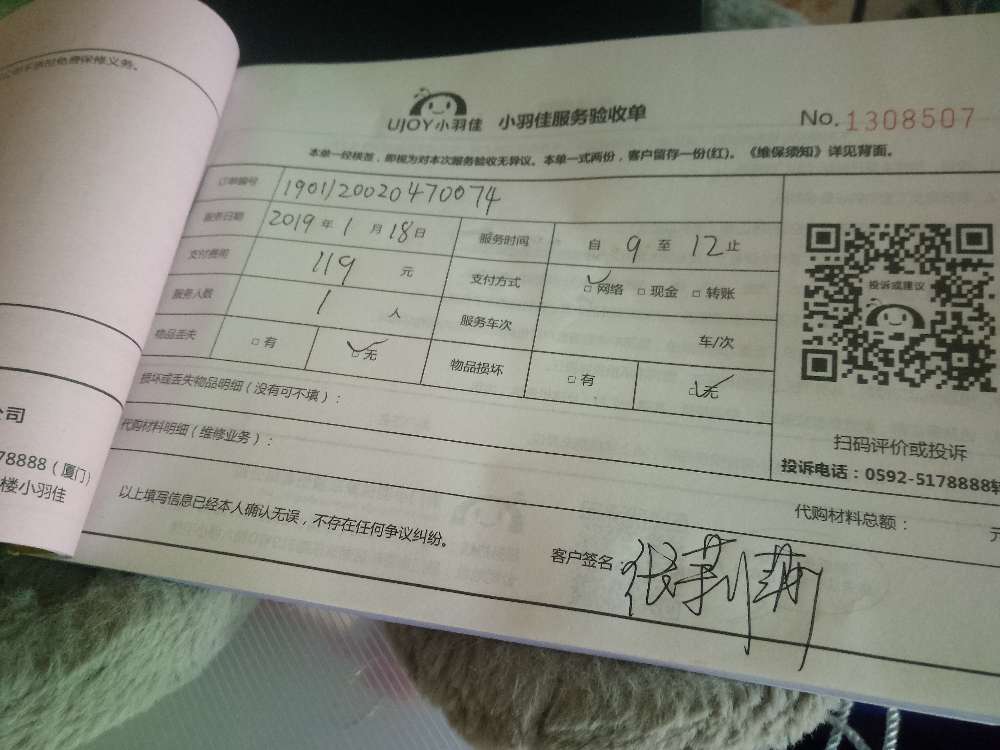 免费保修义务。
公司
78888（厦门）
楼小羽佳
UJOY小羽佳 小羽佳服务验收单
No. 1308507
本单一经核签，即视为对本次服务验收无异议。本单一式两份，客户留存一份(红)。《维保须知》详见背面。
订单编号 1901120020470074
服务日期 2019年1月18日 服务时间 自9至12止
支付费用 119元 支付方式 ☑网络 □现金 □转账
服务人数 1人 服务车次 车/次
物品丢失 □有 ☑无 物品损坏 □有 ☑无
损坏或丢失物品明细（没有可不填）：
代购材料明细（维修业务）：
投诉或建议
扫码评价或投诉
投诉电话：0592-5178888转
代购材料总额： 元
以上填写信息已经本人确认无误，不存在任何争议纠纷。
客户签名：张莉莉